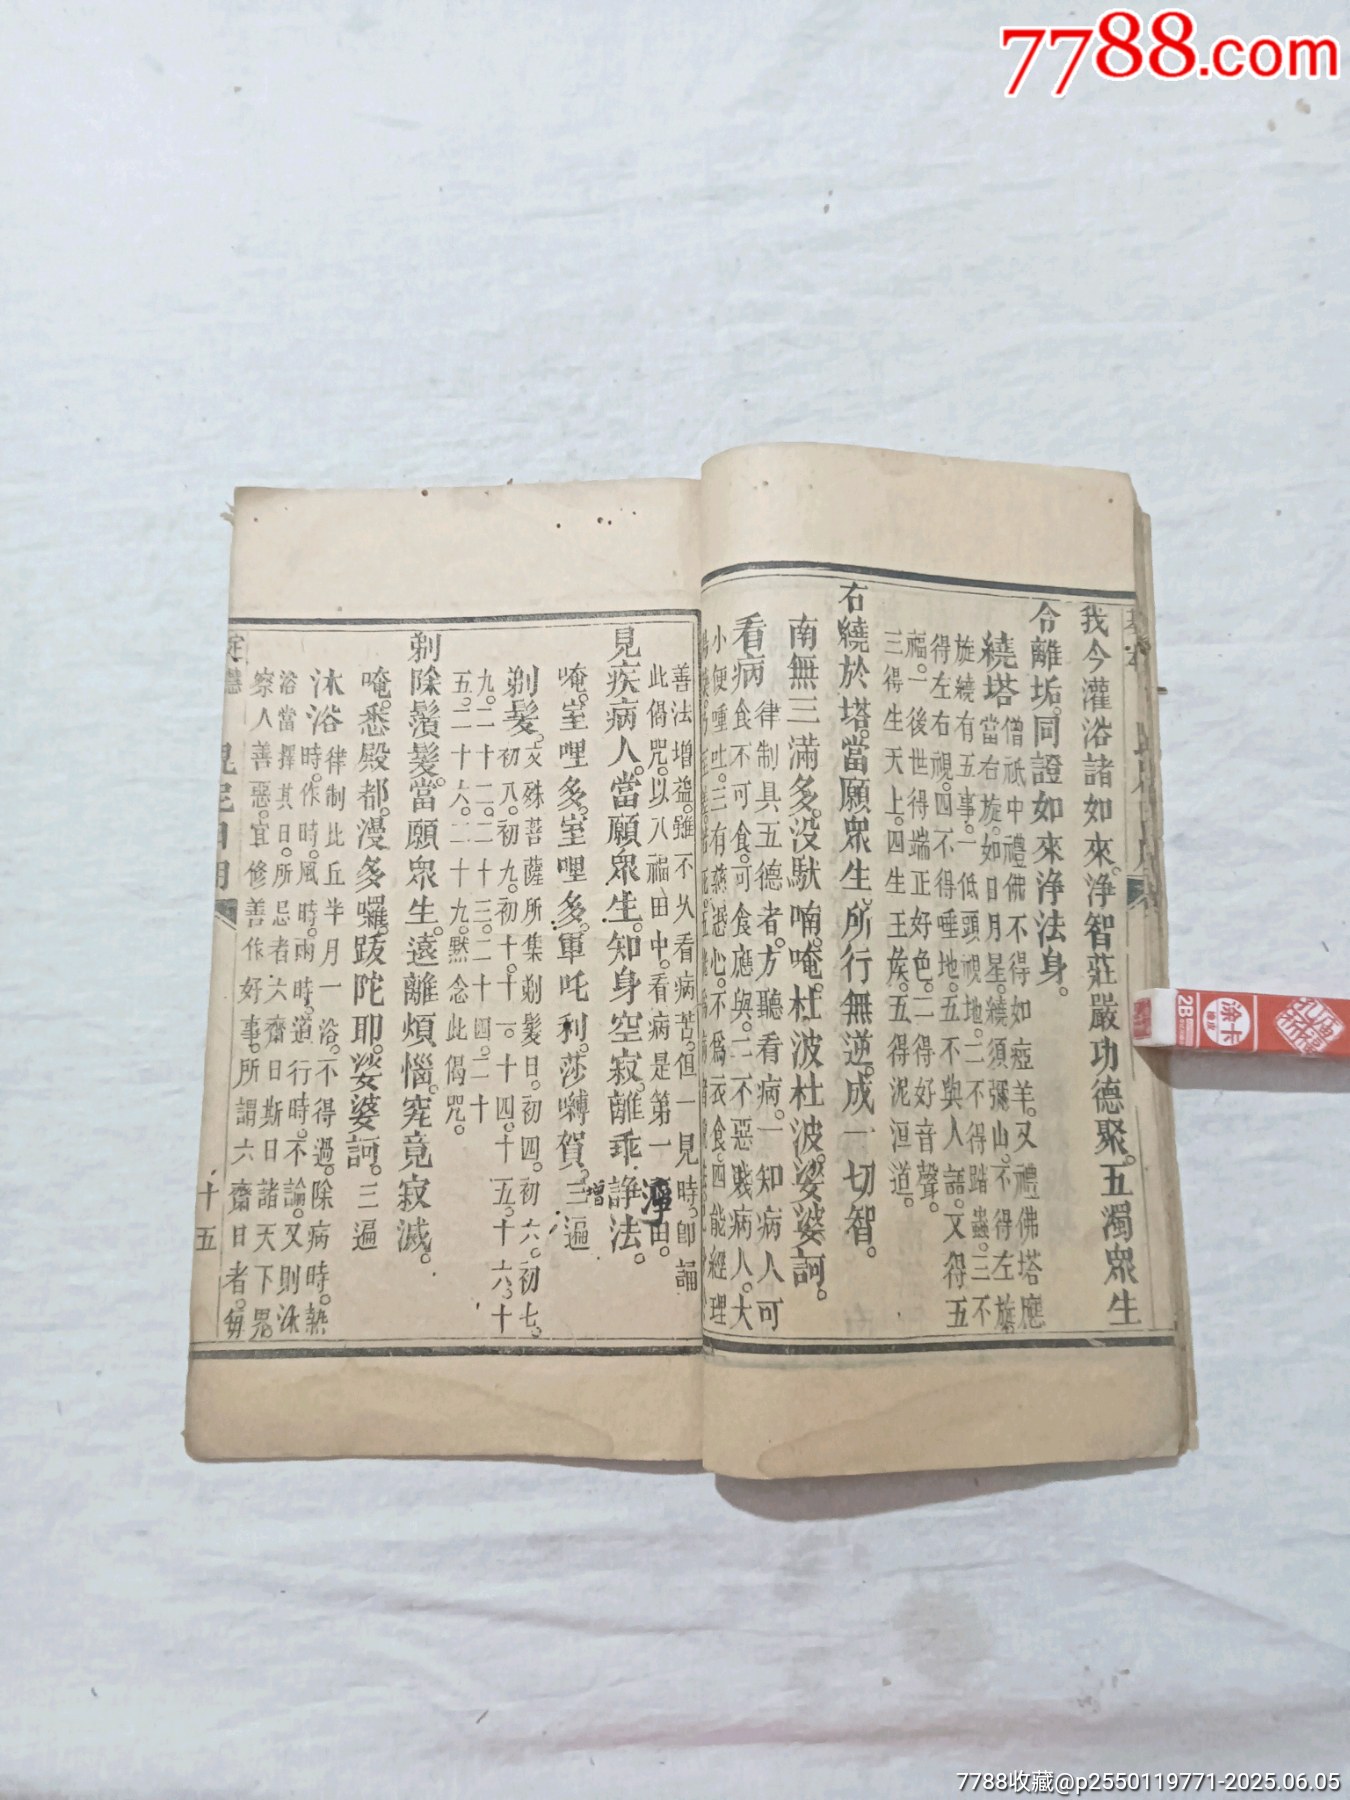 7788.com
我今灌浴諸如來。淨智莊嚴功德聚。五濁眾生
令離垢。同證如來淨法身。
繞塔
僧祇中。禮佛不得如瘂羊。又禮佛塔應
當右旋。如日月星。繞須彌山。不得左旋
旋繞有五事。一低頭視地。二不得踏蟲。三不
得左右視。四不得唾地。五不與人語。又得五
福。一後世得端正好色。二得好音聲。
三得生天上。四生王侯。五得泥洹道。
右繞於塔。當願眾生。所行無逆。成一切智。
南無三滿多。沒馱喃。唵。杜波杜波。娑婆訶。
看病
律制具五德者。方聽看病。一知病人可
食不可食。可食應與。二不惡賤病人。大
小便唾吐。三有慈愍心。不為衣食。四能經理
善法增益。雖不久看病苦。但一見時。卽誦
此偈咒。以八福田中。看病是第一田。
淨
見疾病人。當願眾生。知身空寂。離乖諍法。
唵。室哩多。室哩多。軍吒利。莎嚩賀。三遍
增
剃髮。
文殊菩薩所集剃髮日。初四。初六。初七。
初八。初九。初十。十一。十四。十五。十六。十
九。二十二。二十三。二十四。二十
五。二十六。二十九。默念此偈咒。
剃除鬚髮。當願眾生。遠離煩惱。究竟寂滅。
唵。悉殿都。漫多囉。跋陀耶。娑婆訶。三遍
沐浴
律制比丘半月一浴。不得過。除病時。熱
時。作時。風時。雨時。道行時。不論。又則沐
浴當擇其日。所忌者六齋日。斯日諸天下界。
察人善惡。宜修善作好事。所謂六齋日者。每
十五
2B
涂卡
7788收藏@p2550119771-2025.06.05